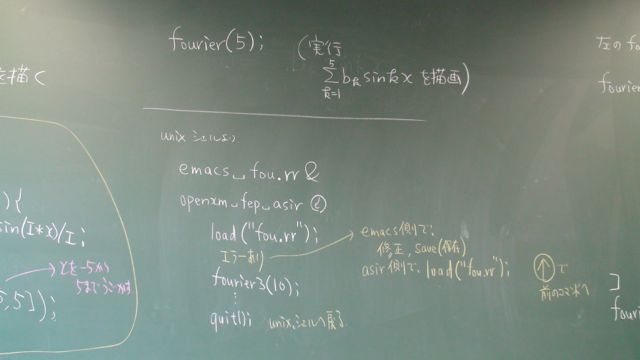 を描く
){
sin(I*x)/I;
xを-5から
5まで動かす
5,5]);
fourier(5); (実行
5
∑ bₖ sin kx を描画)
k=1
unix シェルより
emacs␣fou.rr &
openxm␣fep␣asir ②
load("fou.rr");
エラーあり
fourier3(10);
⋮
quit(); unixシェルへ戻る
→ emacs側で;
修正, save(保存)
asir側で, load("fou.rr");
↑ で
前のコマンドへ
fou
fourier
]
fouri